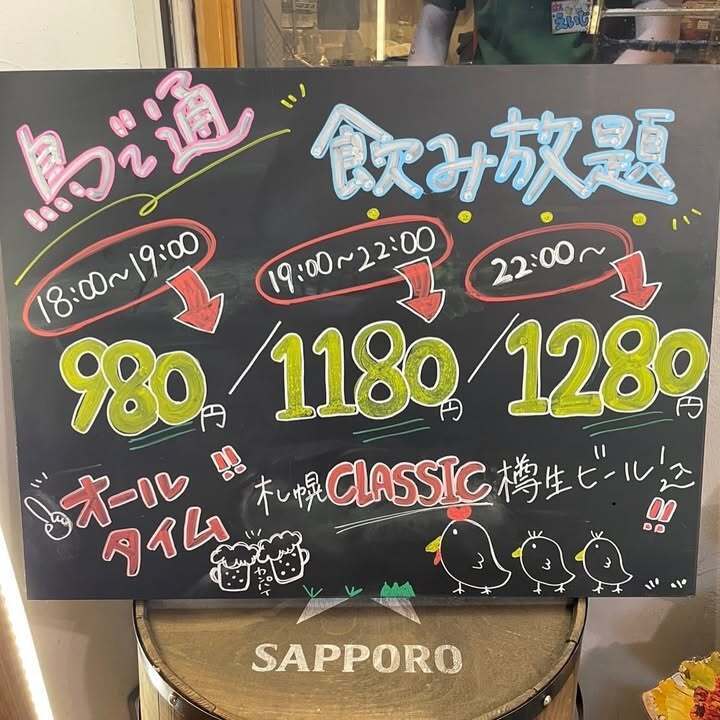 鳥で通
飲み放題
18:00~19:00
19:00~22:00
22:00~
980円/1180円/1280円
オールタイム!!
札幌CLASSIC樽生ビール!!
カンパイ
SAPPORO